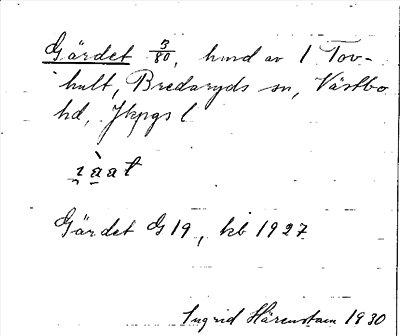 Gärdet 3/80, hmd av 1 Tov-
hult, Bredaryds sn, Västbo
hd, Jkpgs l
Gärdet G19, kb 1927
Ingrid Härenstam 1930